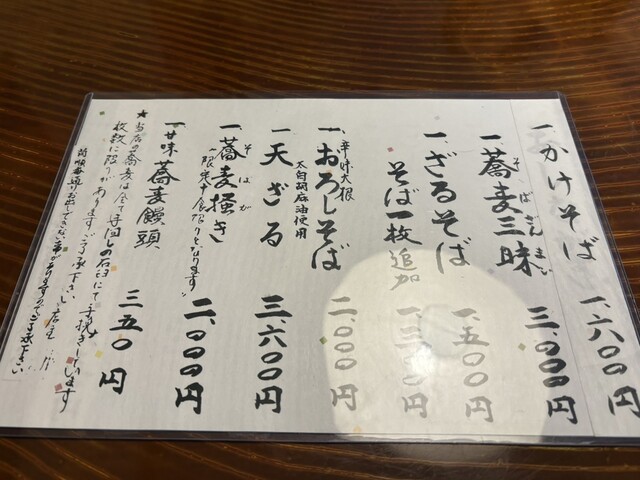 一、かけそば 一、六〇〇円
一、蕎麦三昧 三、〇〇〇円
そばざんまい
一、ざるそば 一、五〇〇円
そば一枚追加
一、おろしそば 二、〇〇〇円
辛味大根
一、天ざる 三、六〇〇円
太白胡麻油使用
一、蕎麦掻き 二、〇〇〇円
そばがき
一、甘味 蕎麦饅頭 三五〇円
★当店の蕎麦は全て手回しの石臼にて手挽きしています
枚数に限りがありますご了承下さい 店主